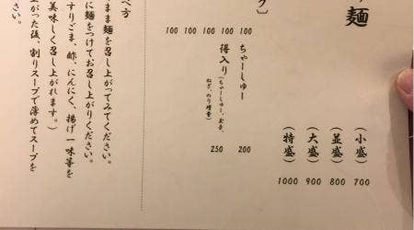 麺
(小盛) 700
(並盛) 800
(大盛) 900
(特盛) 1000
100 100 100 100 100
ちゃーしゅー 200
得入り(ちゃーしゅー、玉子、ねぎ、のり増量) 250
べ方
まま麺を召し上がってみてください。
に麺をつけてお召し上がりください。
すりごま、酢、にんにく、揚げ一味等を
美味しく召し上がれます。)
がった後、割りスープで薄めてスープを
さい。